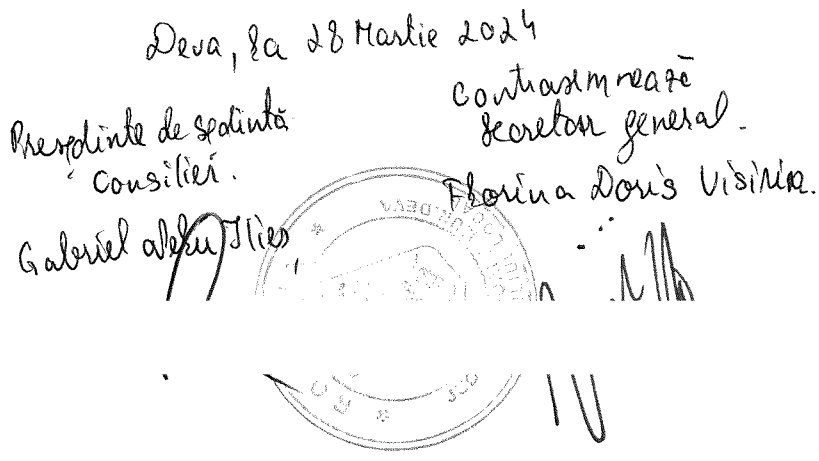 Deva, la 28 Martie 2024
Președinte de ședință
Consilier.
Gabriel Ilies
Contrasemnează
Secretar general.
Florina Doris Visirin.